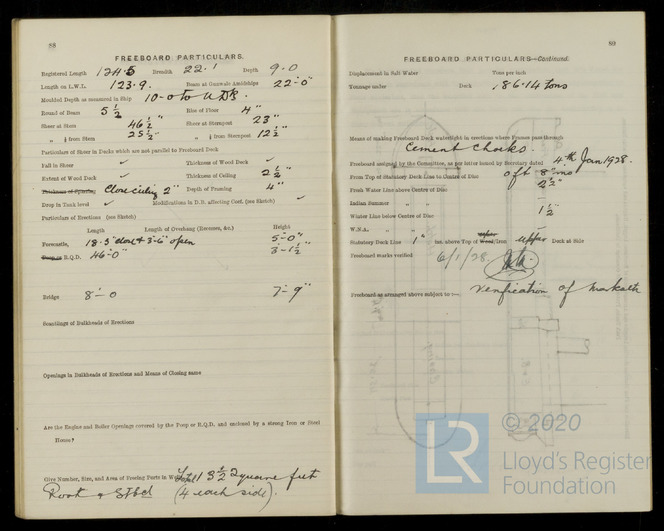 88
FREEBOARD PARTICULARS.
Registered Length 124.5 Breadth 22.1 Depth 9.0
Length on L.W.L. 123.9. Beam at Gunwale Amidships 22'-0"
Moulded Depth as measured in Ship 10-0 to U.DK.
Round of Beam 5 1/2 Rise of Floor 4"
Sheer at Stem 46 1/2" Sheer at Sternpost 23"
" 1/8 from Stem 25 1/2" " 1/8 from Sternpost 12 1/2"
Particulars of Sheer in Decks which are not parallel to Freeboard Deck
Fall in Sheer ✓ Thickness of Wood Deck ✓
Extent of Wood Deck ✓ Thickness of Ceiling 2 1/2"
Thickness of Sparring Close ceiling 2" Depth of Framing 4"
Drop in Tank level ✓ Modifications in D.B. affecting Coef. (see Sketch) ✓
Particulars of Erections (see Sketch)
Length Length of Overhang (Recesses, &c.) Height
Forecastle, 18.5 closed & 3'-6" open 5'-0"
Poop or R.Q.D. 46'-0" 3'-1 1/2"
Bridge 8'-0 7'-9"
Scantlings of Bulkheads of Erections
Openings in Bulkheads of Erections and Means of Closing same
Are the Engine and Boiler Openings covered by the Poop or R.Q.D. and enclosed by a strong Iron or Steel
House?
Give Number, Size, and Area of Freeing Ports in Well Total 13 1/2 Square feet
Port & Stbd (4 each side).
89
FREEBOARD PARTICULARS—Continued.
Displacement in Salt Water Tons per inch
Tonnage under Deck 186.14 tons
Means of making Freeboard Deck watertight in erections where Frames pass through
Cement Chocks.
Freeboard assigned by the Committee, as per letter issued by Secretary dated 4th Jan 1928.
From Top of Statutory Deck Line to Centre of Disc 0 ft 8" ins
Fresh Water Line above Centre of Disc 2 1/2"
Indian Summer " "
Winter Line below Centre of Disc 1 1/2
W.N.A. " "
Statutory Deck Line 1" ins. above Top of Wood/Iron Upper Deck at Side
Freeboard marks verified 6/1/28.
Freeboard as arranged above subject to:— Verification of Marks etc
© 2020
LR
Lloyd's Register
Foundation